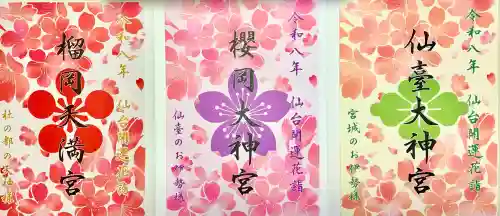 令和八年 仙台開運花詣
榴岡天満宮
杜の都の天神様
令和八年 仙台開運花詣
櫻岡大神宮
仙臺のお伊勢様
令和八年 仙台開運花詣
仙臺大神宮
宮城のお伊勢様